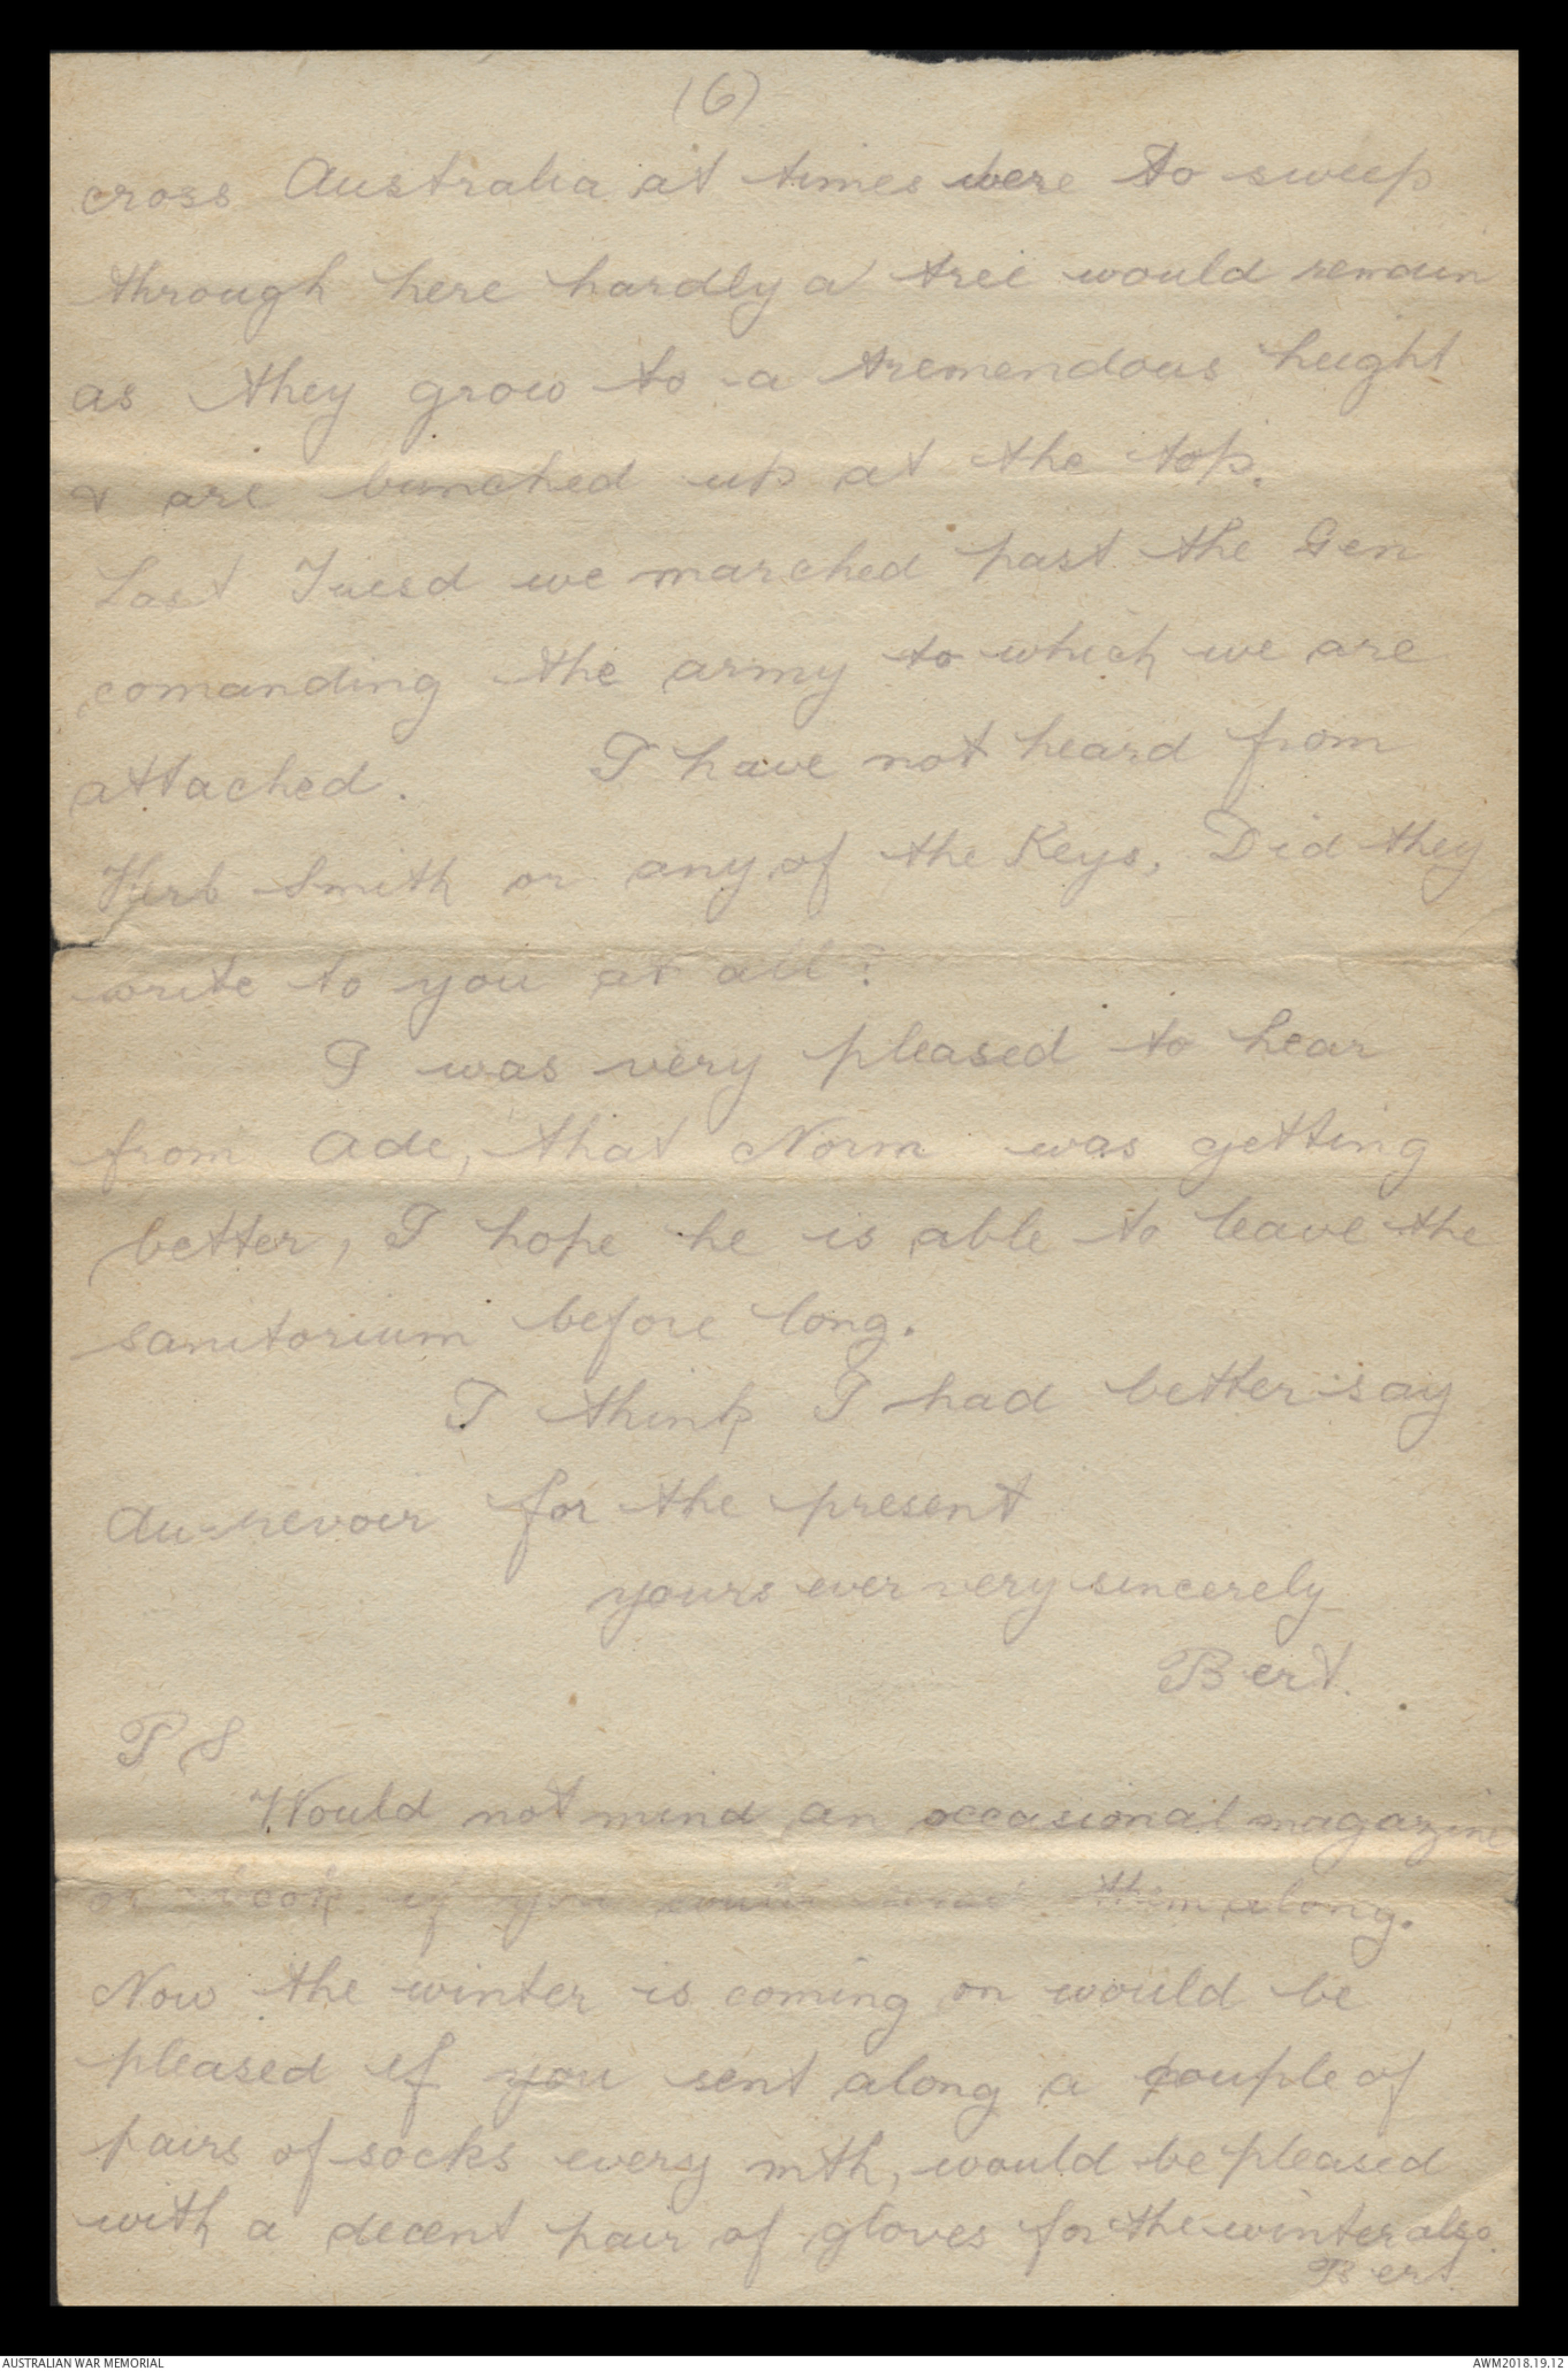 (6)
cross Australia at times were to sweep
through here hardly a tree would remain
as they grow to a tremendous height
& are bunched up at the top.
Last Tuesd we marched past the Gen
comanding the army to which we are
attached. I have not heard from
Herb Smith or any of the Keys, Did they
write to you at all?
I was very pleased to hear
from Ade, that Norm was getting
better, I hope he is able to leave the
sanitorium before long.
I think I had better say
Au-revoir for the present
yours ever very sincerely
Bert.
P S
Would not mind an occasional magazine
or book if you could send them along.
Now the winter is coming on would be
pleased if you sent along a couple of
pairs of socks every mth, would be pleased
with a decent pair of gloves for the winter also.
Bert.
AUSTRALIAN WAR MEMORIAL
AWM2018.19.12